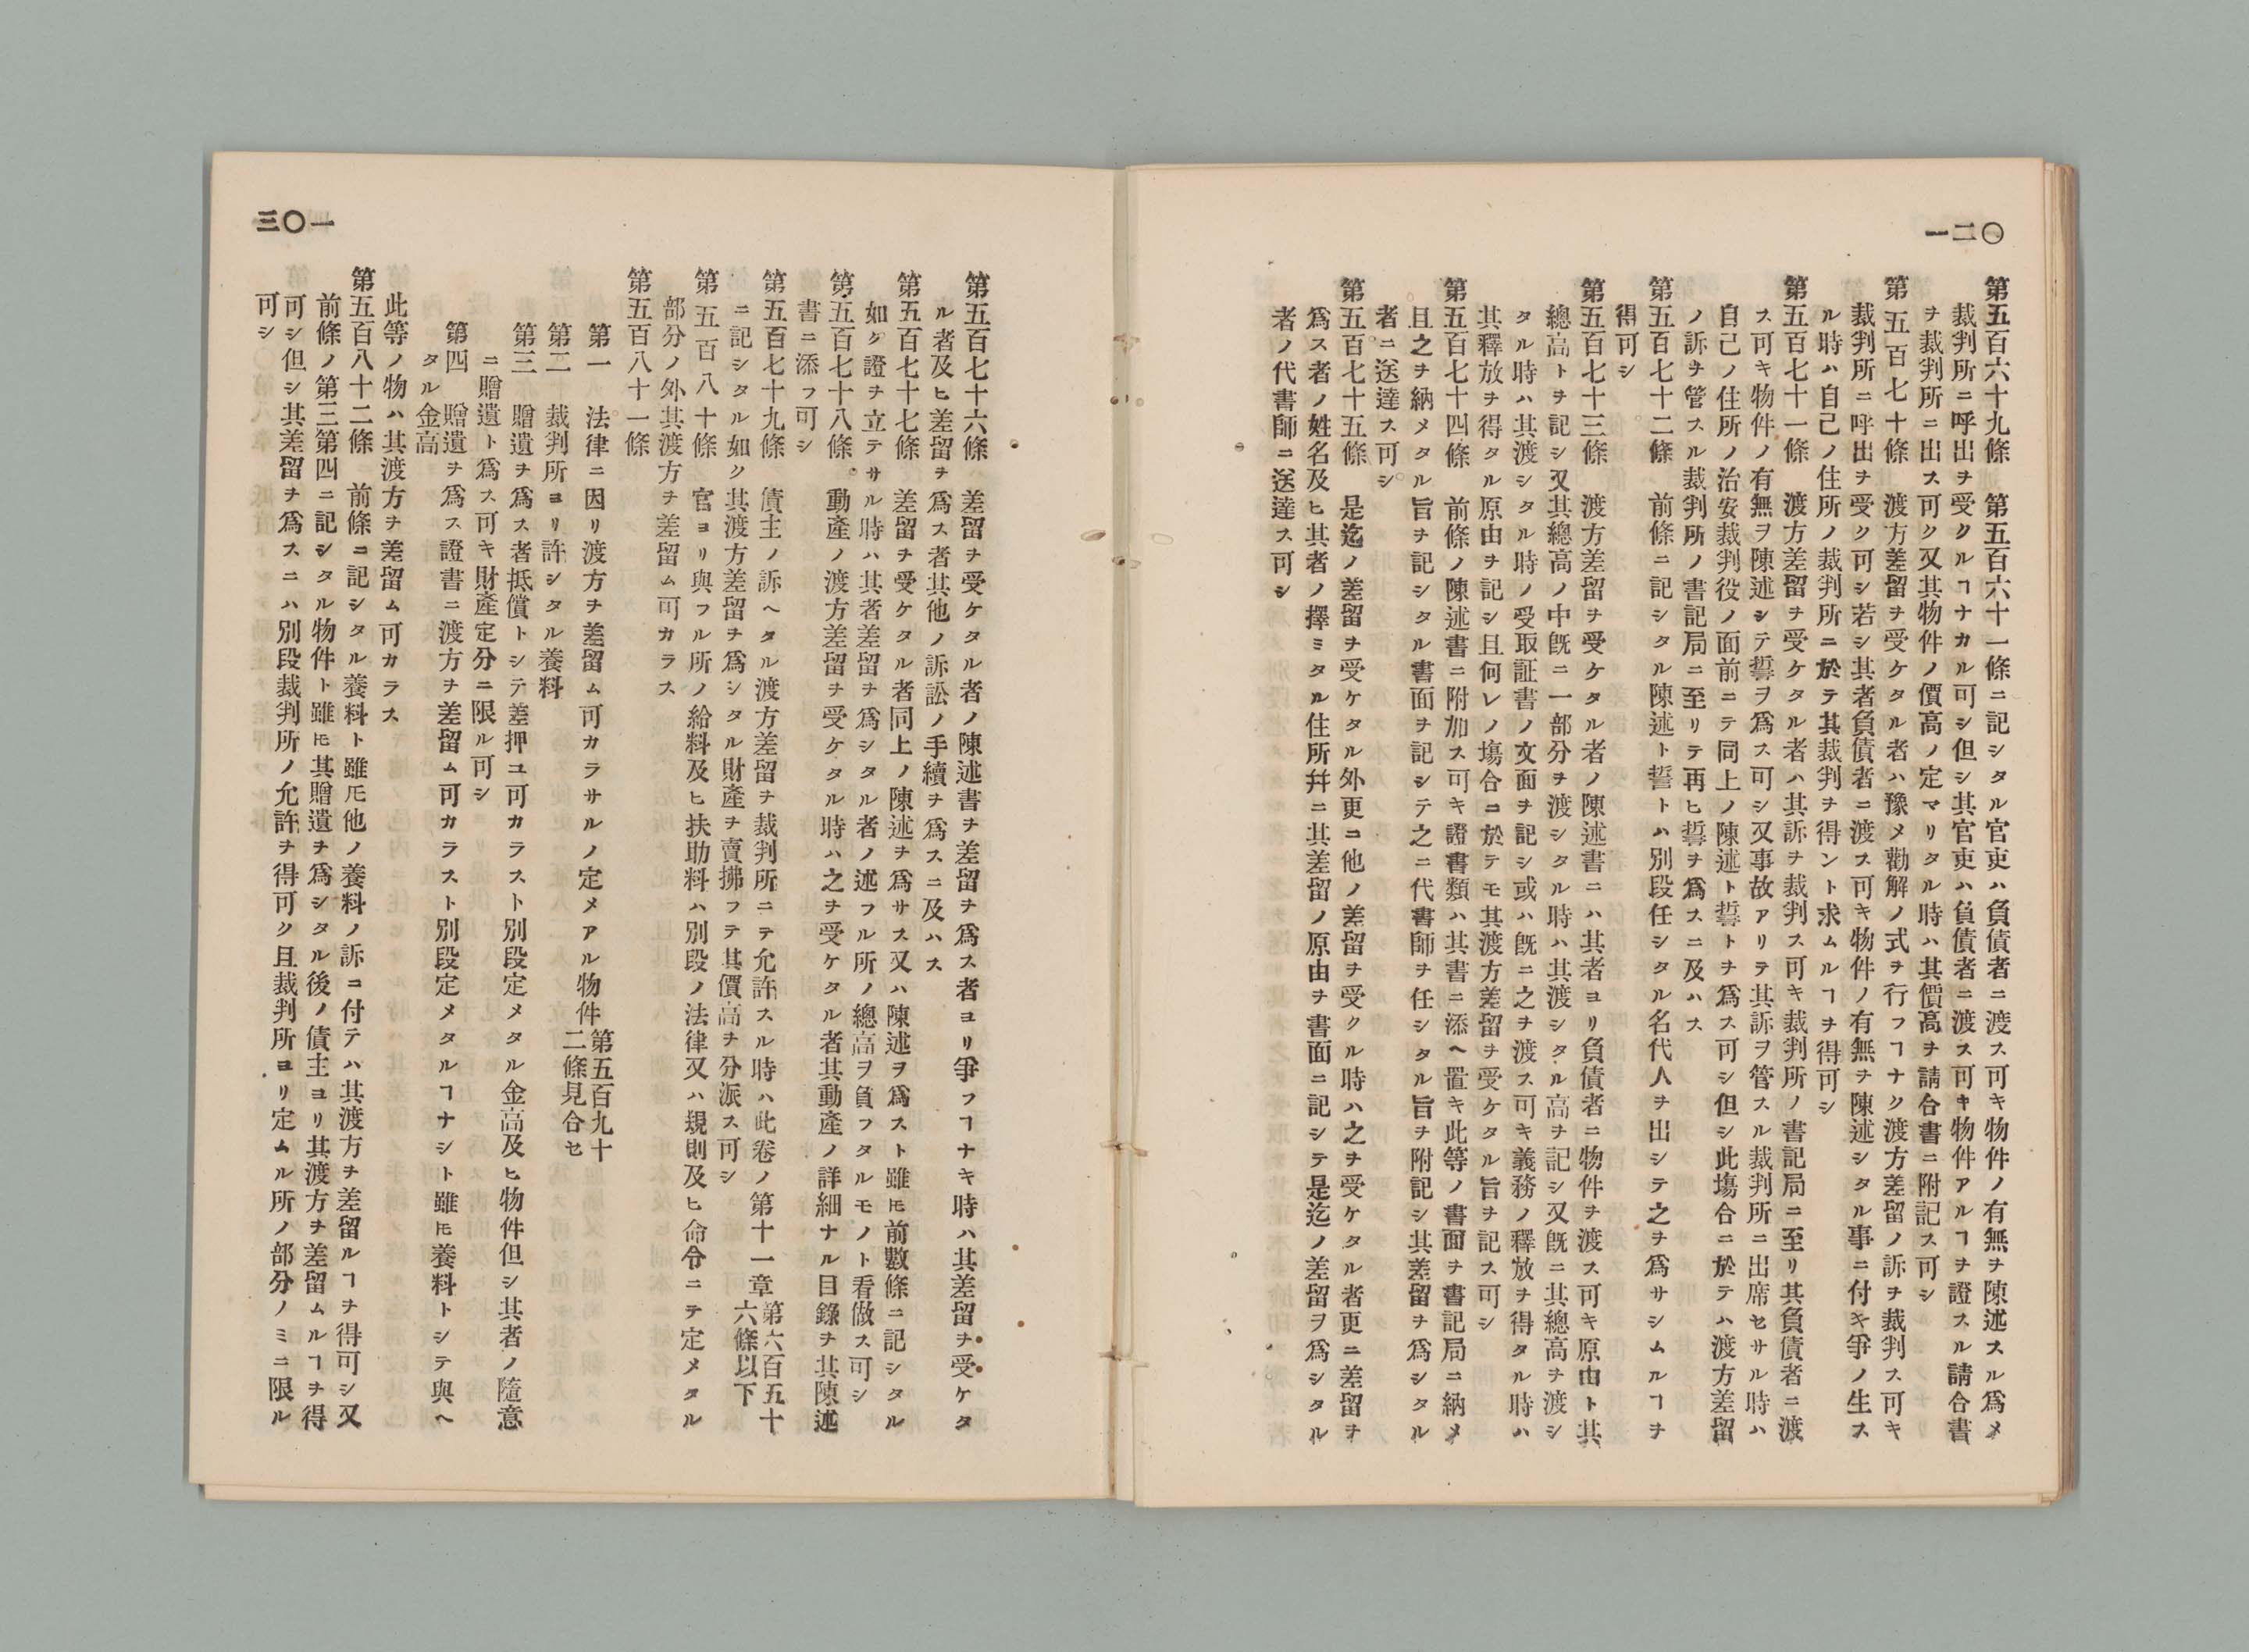 〇二一
第五百六十九條　第五百六十一條ニ記シタル官吏ハ負債者ニ渡ス可キ物件ノ有無ヲ陳述スル爲メ
裁判所ニ呼出ヲ受クルヿナカル可シ但シ其官吏ハ負債者ニ渡ス可キ物件アルヿヲ證スル請合書
ヲ裁判所ニ出ス可ク又其物件ノ價高ノ定マリタル時ハ其價高ヲ請合書ニ附記ス可シ
第五百七十條　渡方差留ヲ受ケタル者ハ豫メ勸解ノ式ヲ行フヿナク渡方差留ノ訴ヲ裁判ス可キ
裁判所ニ呼出ヲ受ク可シ若シ其者負債者ニ渡ス可キ物件ノ有無ヲ陳述シタル事ニ付キ爭ノ生ス
ル時ハ自己ノ住所ノ裁判所ニ於テ其裁判ヲ得ント求ムルヿヲ得可シ
第五百七十一條　渡方差留ヲ受ケタル者ハ其訴ヲ裁判ス可キ裁判所ノ書記局ニ至リ其負債者ニ渡
ス可キ物件ノ有無ヲ陳述シテ誓ヲ爲ス可シ又事故アリテ其訴ヲ管スル裁判所ニ出席セサル時ハ
自己ノ住所ノ治安裁判役ノ面前ニテ同上ノ陳述ト誓トヲ爲ス可シ但シ此塲合ニ於テハ渡方差留
ノ訴ヲ管スル裁判所ノ書記局ニ至リテ再ヒ誓ヲ爲スニ及ハス
第五百七十二條　前條ニ記シタル陳述ト誓トハ別段任シタル名代人ヲ出シテ之ヲ爲サシムルヿヲ
得可シ
第五百七十三條　渡方差留ヲ受ケタル者ノ陳述書ニハ其者ヨリ負債者ニ物件ヲ渡ス可キ原由ト其
總高トヲ記シ又其總高ノ中旣ニ一部分ヲ渡シタル時ハ其渡シタル高ヲ記シ又旣ニ其總高ヲ渡シ
タル時ハ其渡シタル時ノ受取証書ノ文面ヲ記シ或ハ旣ニ之ヲ渡ス可キ義務ノ釋放ヲ得タル時ハ
其釋放ヲ得タル原由ヲ記シ且何レノ塲合ニ於テモ其渡方差留ヲ受ケタル旨ヲ記ス可シ
第五百七十四條　前條ノ陳述書ニ附加ス可キ證書類ハ其書ニ添ヘ置キ此等ノ書面ヲ書記局ニ納メ
且之ヲ納メタル旨ヲ記シタル書面ヲ記シテ之ニ代書師ヲ任シタル旨ヲ附記シ其差留ヲ爲シタル
者ニ送達ス可シ
第五百七十五條　是迄ノ差留ヲ受ケタル外更ニ他ノ差留ヲ受クル時ハ之ヲ受ケタル者更ニ差留ヲ
爲ス者ノ姓名及ヒ其者ノ擇ミタル住所幷ニ其差留ノ原由ヲ書面ニ記シテ是迄ノ差留ヲ爲シタル
者ノ代書師ニ送達ス可シ
一〇三
第五百七十六條　差留ヲ受ケタル者ノ陳述書ヲ差留ヲ爲ス者ヨリ爭フヿナキ時ハ其差留ヲ受ケタ
ル者及ヒ差留ヲ爲ス者其他ノ訴訟ノ手續ヲ爲スニ及ハス
第五百七十七條　差留ヲ受ケタル者同上ノ陳述ヲ爲サス又ハ陳述ヲ爲スト雖ㇳモ前數條ニ記シタル
如ク證ヲ立テサル時ハ其者差留ヲ爲シタル者ノ述フル所ノ總高ヲ負フタルモノト看做ス可シ
第五百七十八條　動產ノ渡方差留ヲ受ケタル時ハ之ヲ受ケタル者其動產ノ詳細ナル目錄ヲ其陳述
書ニ添フ可シ
第五百七十九條　債主ノ訴ヘタル渡方差留ヲ裁判所ニテ允許スル時ハ此卷ノ第十一章第六百五十六條以下
ニ記シタル如ク其渡方差留ヲ爲シタル財產ヲ賣拂フテ其價高ヲ分派ス可シ
第五百八十條　官ヨリ與フル所ノ給料及ヒ扶助料ハ別段ノ法律又ハ規則及ヒ命令ニテ定メタル
部分ノ外其渡方ヲ差留ム可カラス
第五百八十一條
第一　法律ニ因リ渡方ヲ差留ム可カラサルノ定メアル物件第五百九十二條見合セ
第二　裁判所ヨリ許シタル養料
第三　贈遺ヲ爲ス者抵償トシテ差押ユ可カラスト別段定メタル金高及ヒ物件但シ其者ノ隨意
ニ贈遺ト爲ス可キ財產定分ニ限ル可シ
第四　贈遺ヲ爲ス證書ニ渡方ヲ差留ム可カラスト別段定メタルヿナシト雖ㇳモ養料トシテ與ヘ
タル金高
此等ノ物ハ其渡方ヲ差留ム可カラス
第五百八十二條　前條ニ記シタル養料ト雖ㇳモ他ノ養料ノ訴ニ付テハ其渡方ヲ差留ルヿヲ得可シ又
前條ノ第三第四ニ記シタル物件ト雖ㇳモ其贈遺ヲ爲シタル後ノ債主ヨリ其渡方ヲ差留ムルヿヲ得
可シ但シ其差留ヲ爲スニハ別段裁判所ノ允許ヲ得可ク且裁判所ヨリ定ムル所ノ部分ノミニ限ル
可シ